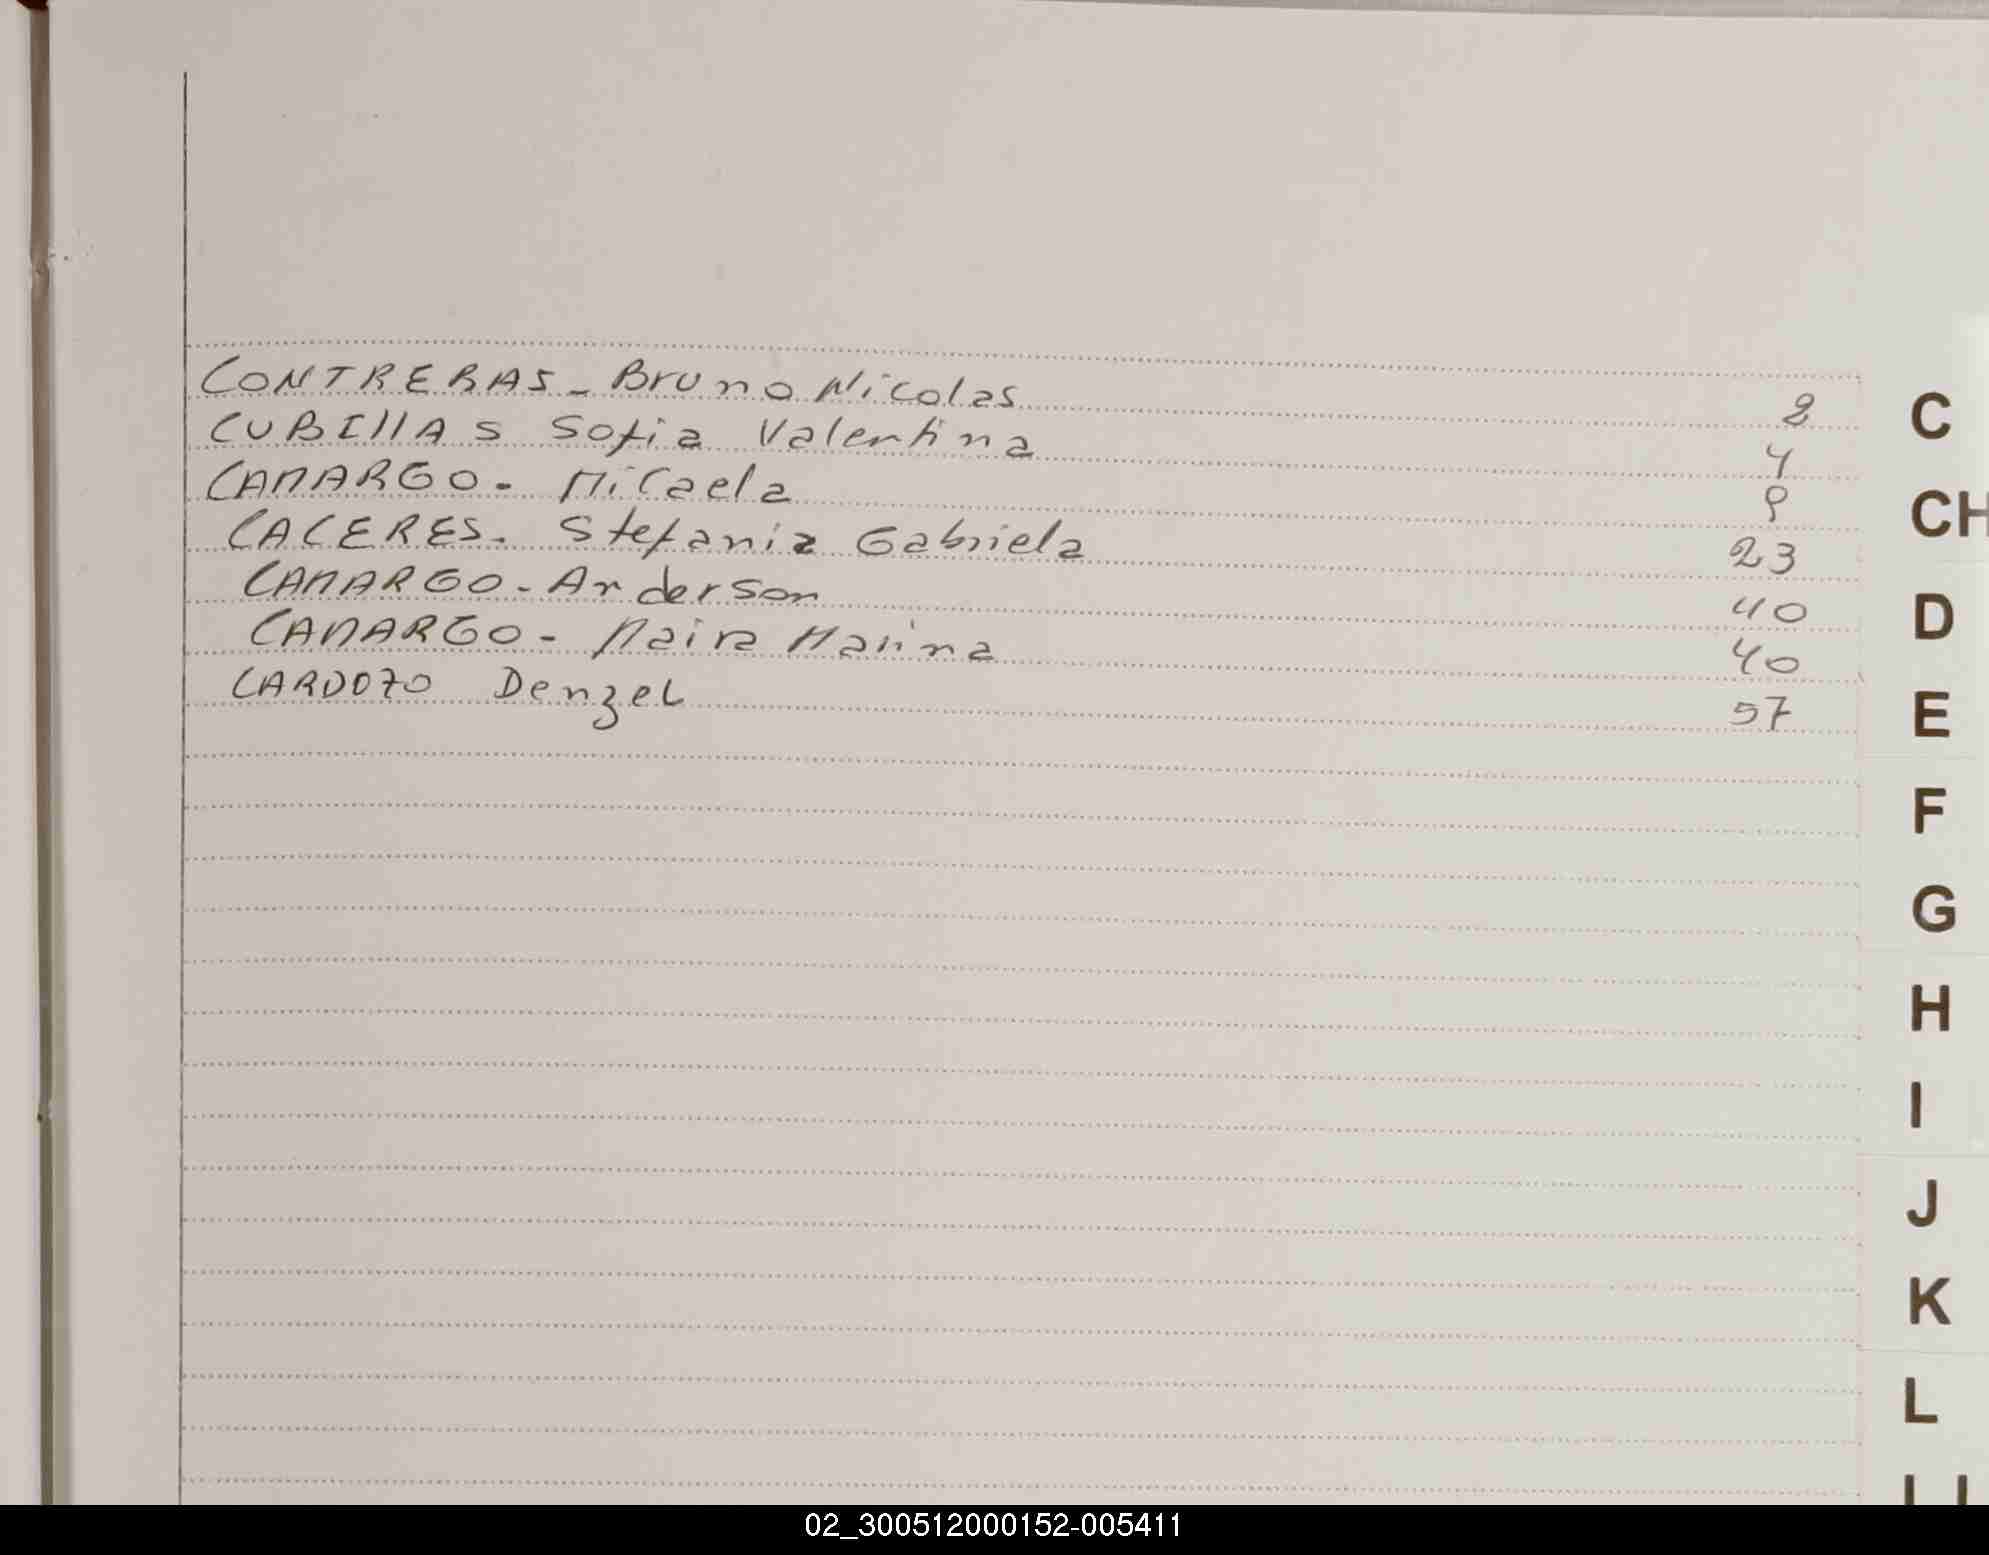 CONTRERAS - Bruno Nicolas 2
CUBIllAS Sofia Valentina 4
CAMARGO - Micaela 9
CACERES - Stefania Gabriela 23
CAMARGO - Anderson 40
CAMARGO - Maira Marina 40
CARDOZO Denzel 57
C
CH
D
E
F
G
H
I
J
K
L
02_300512000152-005411